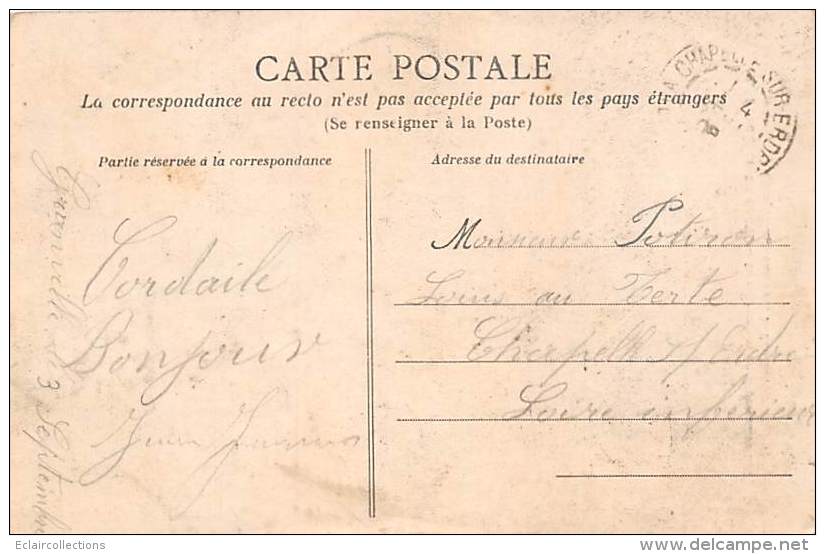 CARTE POSTALE
La correspondance au recto n'est pas acceptée par tous les pays étrangers
(Se renseigner à la Poste)
LA CHAPELLE-SUR-ERDRE
4
Partie réservée à la correspondance
Adresse du destinataire
Monsieur Potiron
Louis au Terte
Chapelle s/ Erdre
Loire inférieure
Cordaile
Bonjour
3 Septembre
Eclaircollections
www.delcampe.net